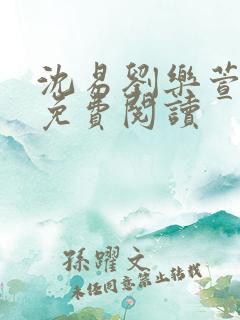 沈易劉樂萱
免費閱讀
孫躍文
未经同意禁止转载